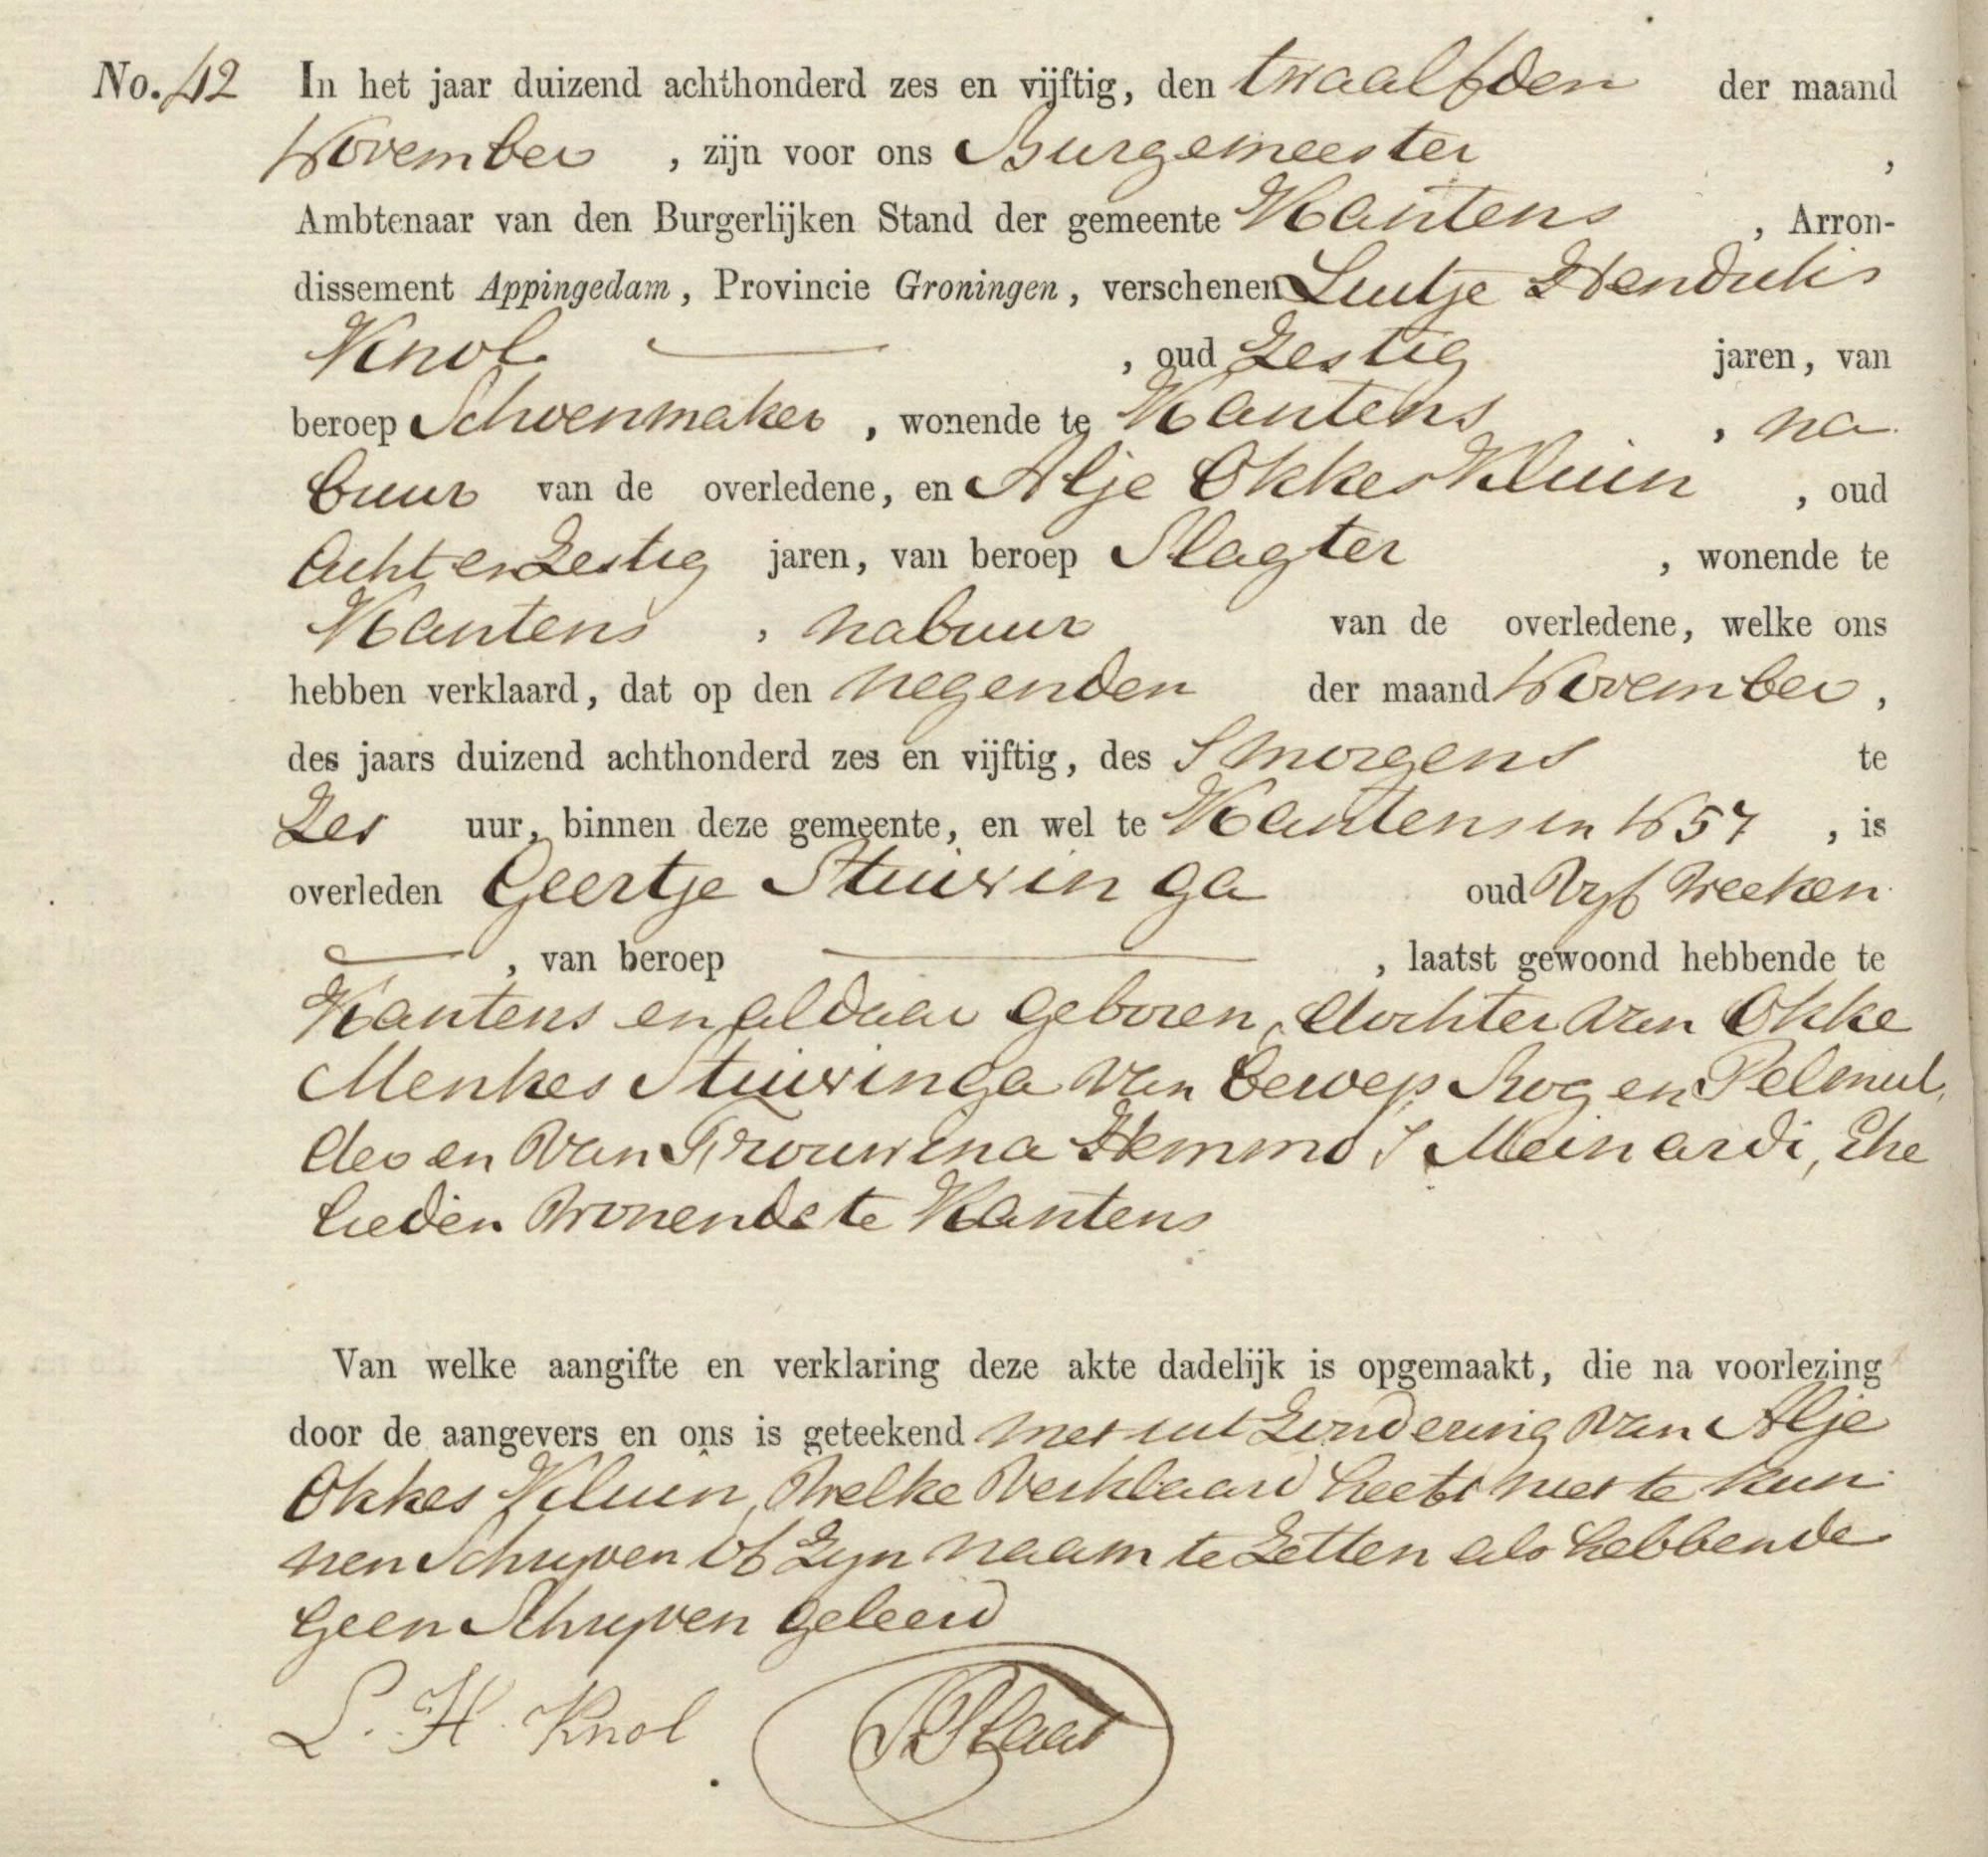 No. 42 In het jaar duizend achthonderd zes en vijftig, den twaalfden der maand
November , zijn voor ons Burgemeester ,
Ambtenaar van den Burgerlijken Stand der gemeente Kantens , Arron-
dissement Appingedam, Provincie Groningen, verschenen Luitje Hendriks
Knol , oud Zestig jaren, van
beroep Schoenmaker , wonende te Kantens , na
buur van de overledene, en Alje Okkes Kluin , oud
Acht en Zestig jaren, van beroep Slagter , wonende te
Kantens , nabuur van de overledene, welke ons
hebben verklaard, dat op den negenden der maand November ,
des jaars duizend achthonderd zes en vijftig, des Smorgens te
Zes uur, binnen deze gemeente, en wel te Kantens in N57 , is
overleden Geertje Stuivinga oud Vyf Weeken
, van beroep , laatst gewoond hebbende te
Kantens en aldaar geboren, dochter van Okke
Menkes Stuivinga van beroep Rog en Pelmul
der en van Trouwina Hemmo S Meinardi, Ehe
lieden Wonende te Kantens
Van welke aangifte en verklaring deze akte dadelijk is opgemaakt, die na voorlezing
door de aangevers en ons is geteekend met uitzondering van Alje
Okkes Kluin, Welke Verklaard heeft niet te kun
nen Schryven of Zyn naam te Zetten als hebbende
geen Schryven geleerd
L. H. Knol